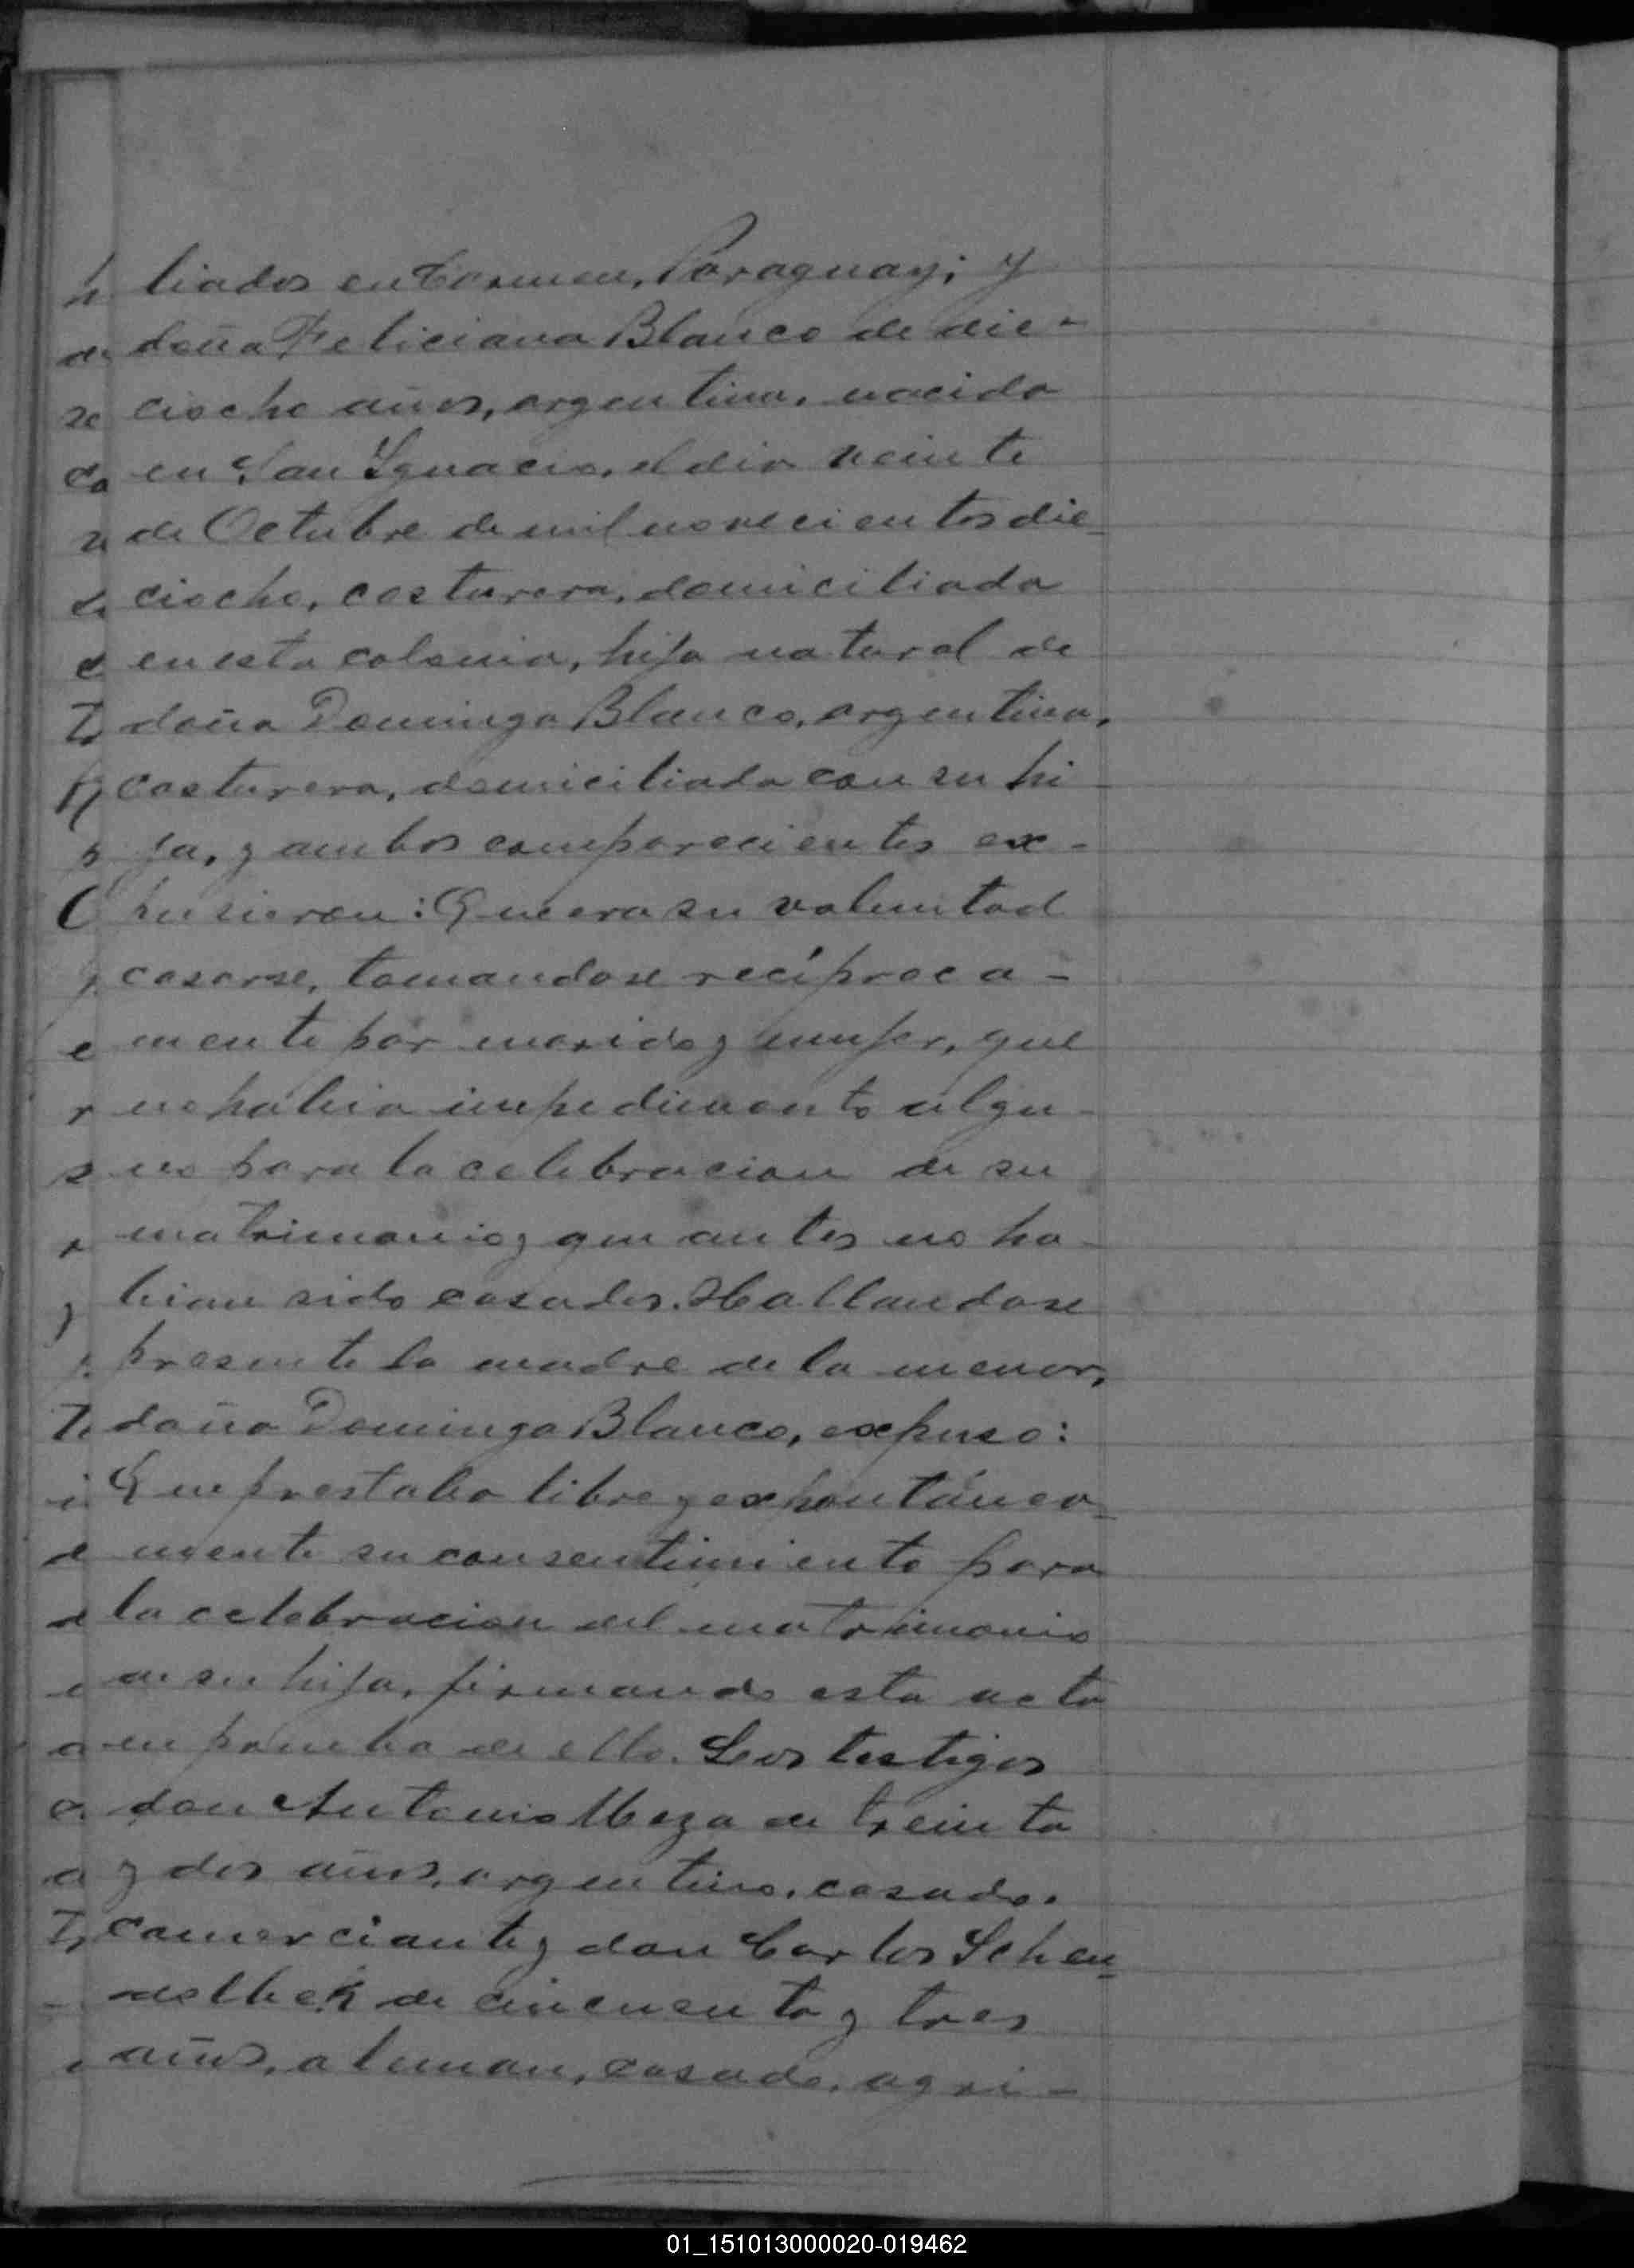 liados en Carmen, Paraguay; y
doña Feliciana Blanco de die-
ciocho años, argentina, nacida
en San Ignacio, el dia veinte
de Octubre de mil novecientos die-
ciocho, costurera, domiciliada
en esta colonia, hija natural de
doña Dominga Blanco, argentina,
costurera, domiciliada con su hi-
ja, y ambos comparecientes ex-
pusieron: Que era su voluntad
casarse, tomandose recíproca-
mente por marido y mujer, que
no habia impedimento algu-
no para la celebracion de su
matrimonio y que antes no ha-
bian sido casados. Hallandose
presente la madre de la menor,
doña Dominga Blanco, expuso:
Que prestaba libre y expontánea-
mente su consentimiento para
la celebracion del matrimonio
de su hija, firmando esta acta
en prueba de ello. Los testigos
don Antonio Meza de treinta
y dos años, argentino, casado,
comerciante y don Carlos Schen-
delbek de cincuenta y tres
años, aleman, casado, agri-
01_151013000020-019462